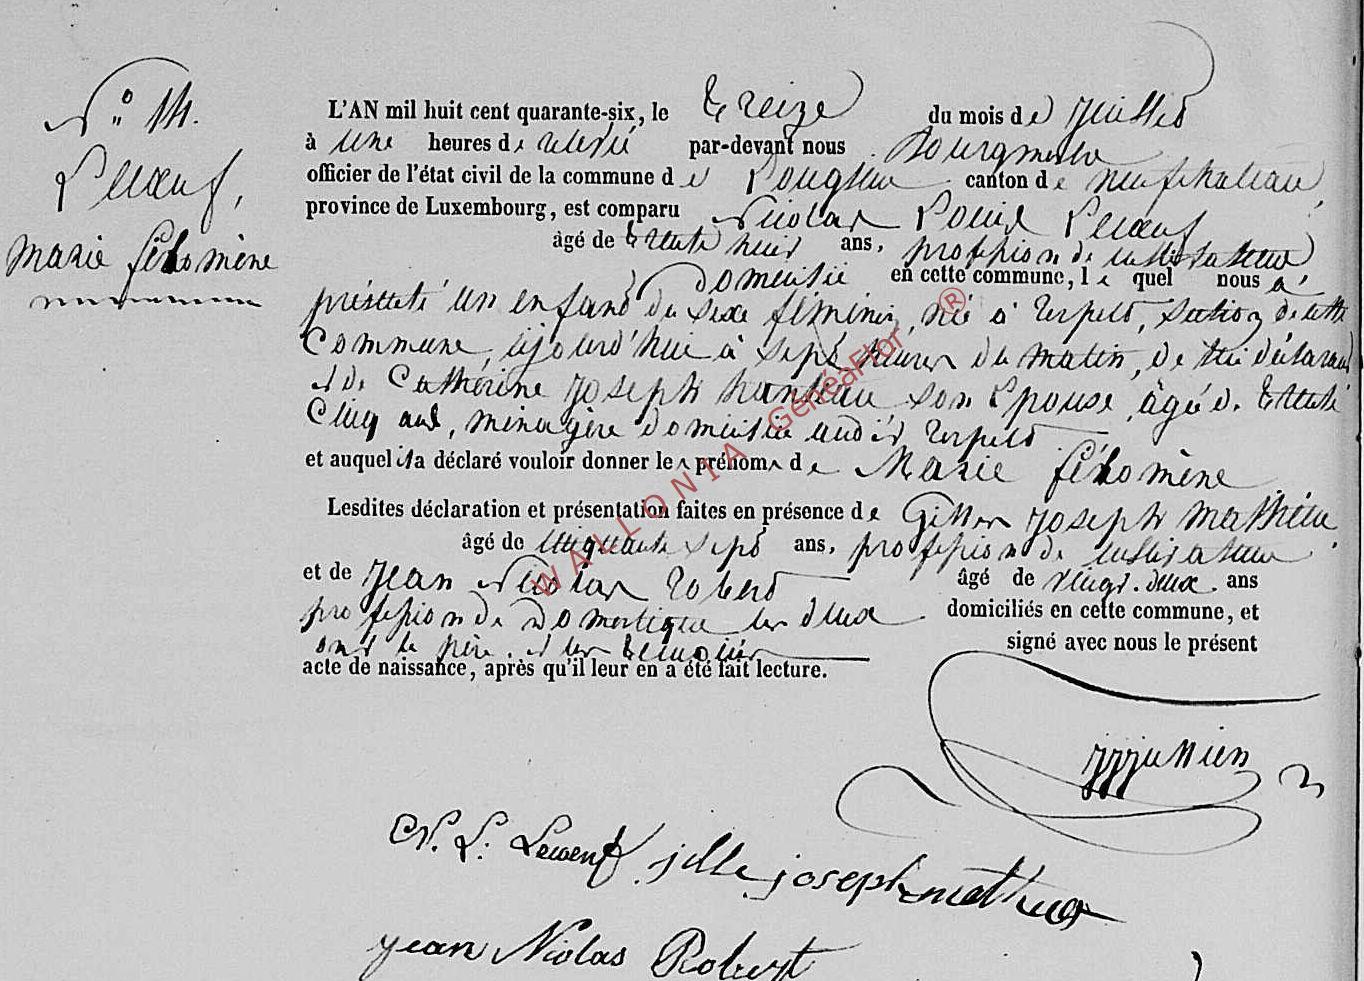 N° 14.
Lecoeuf,
Marie filomène
L'AN mil huit cent quarante-six, le treize du mois de Juillet
à une heures de relevée par-devant nous Bourgmestre
officier de l'état civil de la commune de Longlier canton de neufchateau,
province de Luxembourg, est comparu Nicolas Louis Lecoeuf
âgé de trente huit ans, profession de cultivateur
domicilié en cette commune, le quel nous a
présenté un enfant du sexe féminin, née à Respelt, section de cette
Commune, ajourd'hui à sept heures du matin, de lui déclarant
et de Catherine Joseph son Epouse, âgée de trente
Cinq ans, ménagère domiciliée audit Respelt
et auquel il a déclaré vouloir donner les prénoms de Marie filomène
Lesdites déclaration et présentation faites en présence de Gilles Joseph Mathieu
âgé de cinquante sept ans, profession de cultivateur
et de Jean Nicolas Robert âgé de vingt-deux ans
profession de Domestique les deux domiciliés en cette commune, et
ont le père et les temoins signé avec nous le présent
acte de naissance, après qu'il leur en a été fait lecture.
N. L. Lecoeuf jille joseph mathieu
jean Nicolas Robert
WALLONIA GénéaFlor ®